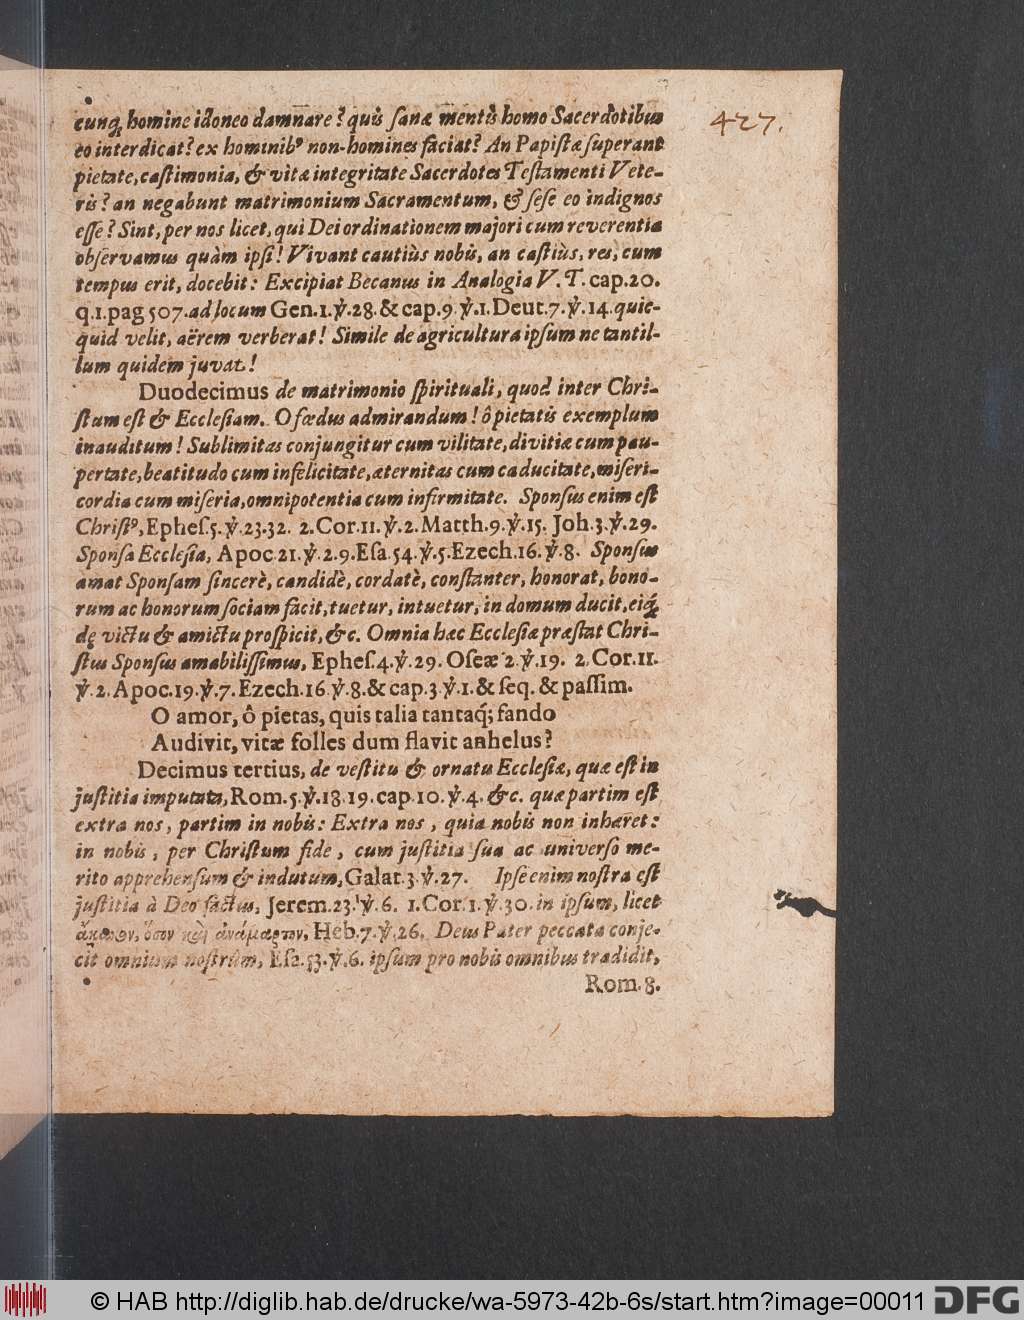 cunq; homine idoneo damnare? quis sanæ mentis homo Sacerdotibus
eo interdicat? ex hominibꝰ non-homines faciat? An Papistæ superant
pietate, castimonia, & vitæ integritate Sacerdotes Testamenti Vete-
ris? an negabunt matrimonium Sacramentum, & sese eo indignos
esse? Sint, per nos licet, qui Dei ordinationem majori cum reverentia
observamus quàm ipsi! Vivant cautiùs nobis, an castiùs, res, cum
tempus erit, docebit: Excipiat Becanus in Analogia V. T. cap. 20.
q. 1. pag 507. ad locum Gen. 1. ℣. 28. & cap. 9. ℣. 1. Deut. 7. ℣. 14. quic-
quid velit, aërem verberat! Simile de agricultura ipsum ne tantil-
lum quidem juvat!
Duodecimus de matrimonio spirituali, quod inter Chri-
stum est & Ecclesiam. O fœdus admirandum! ô pietatis exemplum
inauditum! Sublimitas conjungitur cum vilitate, divitiæ cum pau-
pertate, beatitudo cum infelicitate, æternitas cum caducitate, miseri-
cordia cum miseria, omnipotentia cum infirmitate. Sponsus enim est
Christꝰ, Ephes. 5. ℣. 23. 32. 2. Cor. 11. ℣. 2. Matth. 9. ℣. 15. Joh. 3. ℣. 29.
Sponsa Ecclesia, Apoc. 21. ℣. 2. 9. Esa. 54. ℣. 5. Ezech. 16. ℣. 8. Sponsus
amat Sponsam sincerè, candidè, cordatè, constanter, honorat, bono-
rum ac honorum sociam facit, tuetur, intuetur, in domum ducit, eiq́;
dę victu & amictu prospicit, &c. Omnia hæc Ecclesiæ præstat Chri-
stus Sponsus amabilissimus, Ephes. 4. ℣. 29. Oseæ 2. ℣. 19. 2. Cor. 11.
℣. 2. Apoc. 19. ℣. 7. Ezech. 16. ℣. 8. & cap. 3. ℣. 1. & seq. & passim.
O amor, ô pietas, quis talia tantaq́; fando
Audivit, vitæ folles dum flavit anhelus?
Decimus tertius, de vestitu & ornatu Ecclesiæ, quæ est in
justitia imputata, Rom. 5. ℣. 18. 19. cap. 10. ℣. 4. &c. quæ partim est
extra nos, partim in nobis: Extra nos, quia nobis non inhæret:
in nobis, per Christum fide, cum justitia sua ac universo me-
rito apprehensum & indutum, Galat. 3. ℣. 27. Ipse enim nostra est
justitia à Deo factus, Jerem. 23. ℣. 6. 1. Cor. 1. ℣. 30. in ipsum, licet
ἄκακον, ὅσιον καὶ ἀνάμαρτον, Heb. 7. ℣. 26. Deus Pater peccata conje-
cit omnium nostrûm, Esa. 53. ℣. 6. ipsum pro nobis omnibus tradidit,
Rom. 8.
427.
© HAB http://diglib.hab.de/drucke/wa-5973-42b-6s/start.htm?image=00011
DFG